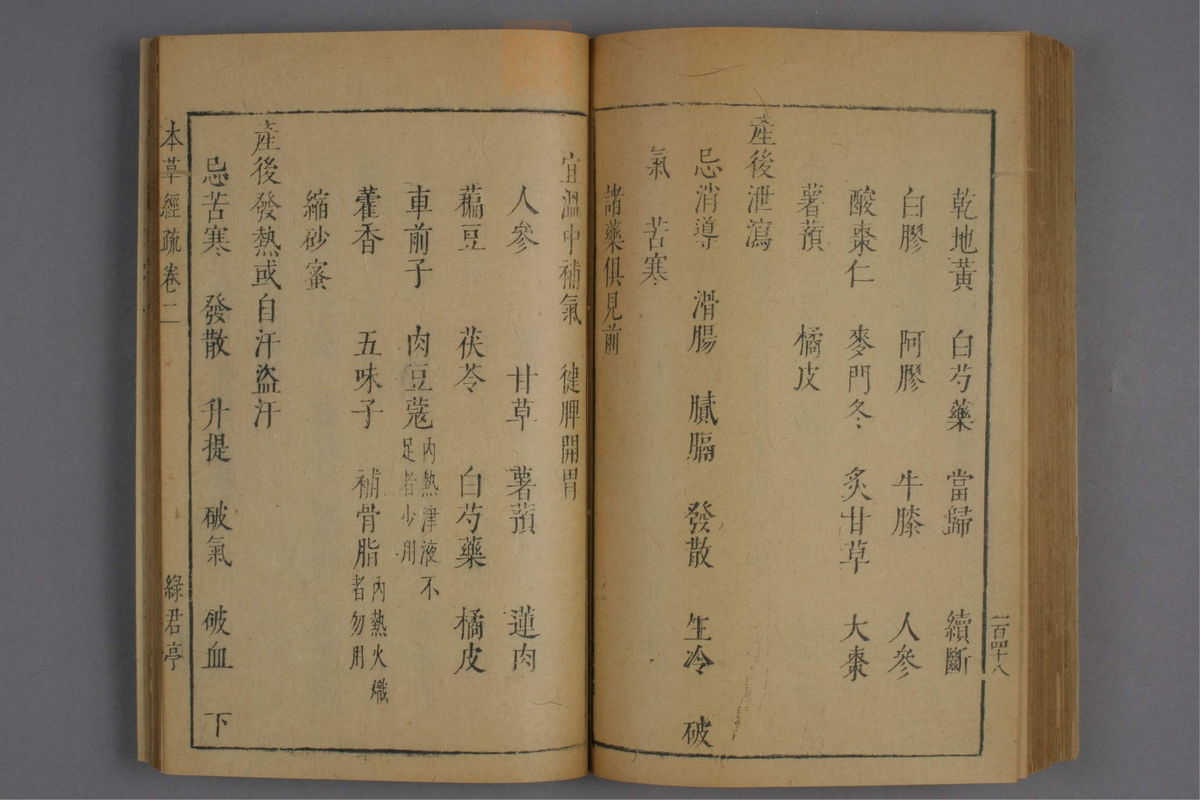 一百四十八
乾地黃 白芍藥 當歸 續斷
白膠 阿膠 牛膝 人參
酸棗仁 麥門冬 炙甘草 大棗
薯蕷 橘皮
產後泄瀉
忌消導 滑腸 膩膈 發散 生冷 破
氣 苦寒
諸藥俱見前
宜溫中補氣 健脾開胃
人參 甘草 薯蕷 蓮肉
藊豆 茯苓 白芍藥 橘皮
車前子 肉豆蔻 內熱津液不足者少用
藿香 五味子 補骨脂 內熱火熾者勿用
縮砂蜜
產後發熱或自汗盜汗
忌苦寒 發散 升提 破氣 破血 下
本草經疏 卷二 綠君亭